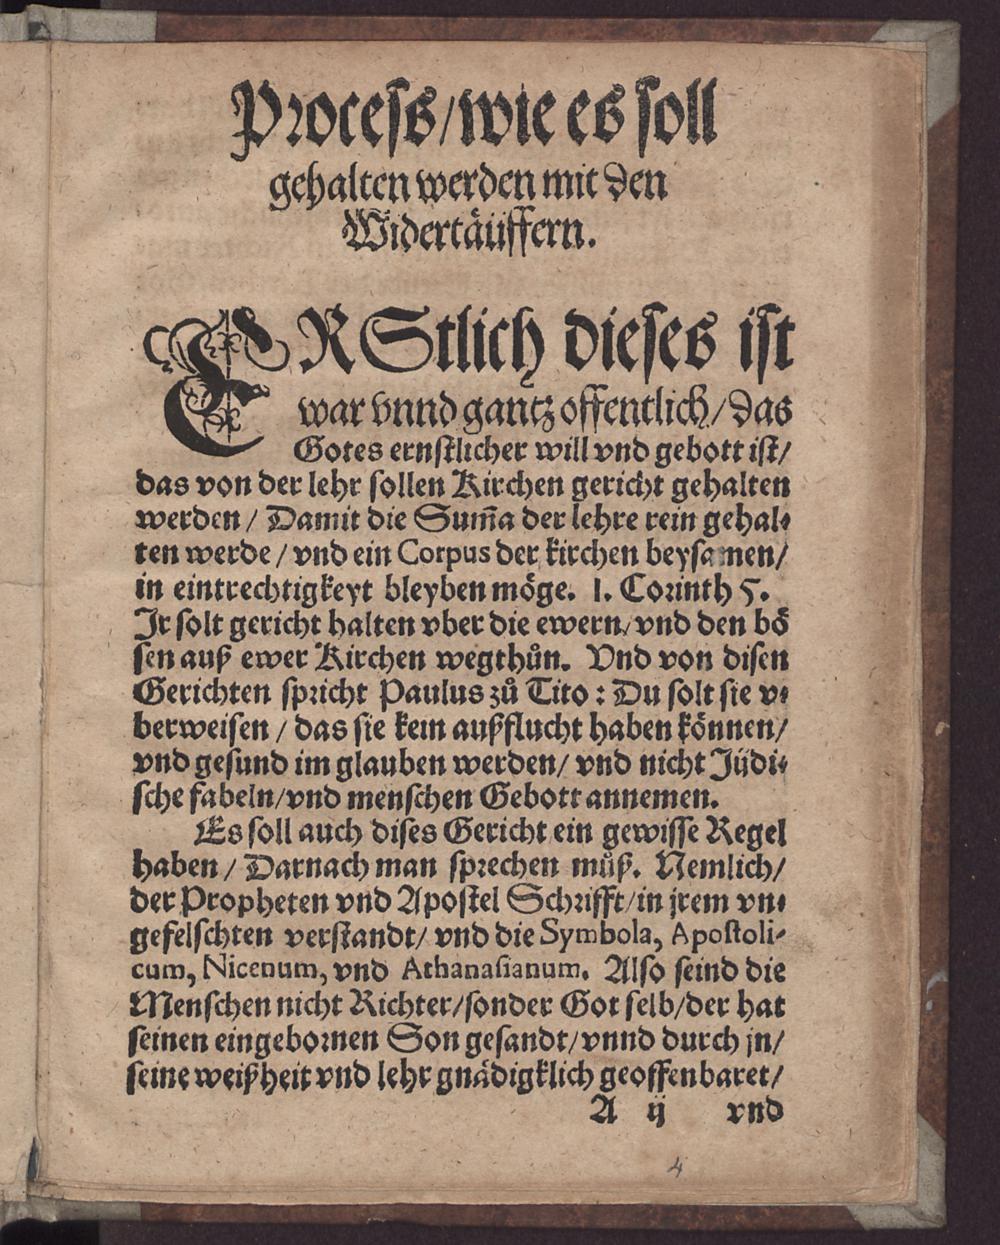 Process/wie es soll
gehalten werden mit den
Widertäuffern.
ERStlich dieses ist
war vnnd gantz offentlich/das
Gotes ernstlicher will vnd gebott ist/
das von der lehr sollen Kirchen gericht gehalten
werden/ Damit die Sum̃a der lehre rein gehal-
ten werde/ vnd ein Corpus der kirchen beysamen/
in eintrechtigkeyt bleyben möge. 1. Corinth 5.
Jr solt gericht halten vber die ewern/vnd den bö
sen auß ewer Kirchen wegthůn. Vnd von disen
Gerichten spricht Paulus zů Tito: Du solt sie v-
berweisen/ das sie kein außflucht haben können/
vnd gesund im glauben werden/ vnd nicht Jüdi-
sche fabeln/vnd menschen Gebott annemen.
Es soll auch dises Gericht ein gewisse Regel
haben/ Darnach man sprechen můß. Nemlich/
der Propheten vnd Apostel Schrifft/in jrem vn-
gefelschten verstandt/ vnd die Symbola, Apostoli-
cum, Nicenum, vnd Athanasianum. Also seind die
Menschen nicht Richter/sonder Got selb/der hat
seinen eingebornen Son gesandt/vnnd durch jn/
seine weißheit vnd lehr gnädigklich geoffenbaret/
A ij vnd
4